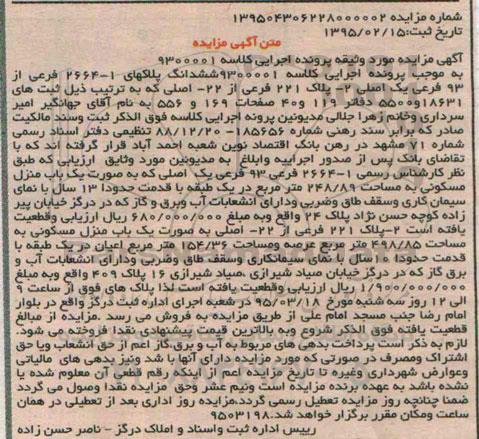 شماره مزایده ۱۳۹۵۰۴۳۰۶۲۲۸۰۰۰۰۰۲
تاریخ ثبت:۱۳۹۵/۰۲/۱۵
متن آگهی مزایده
آگهی مزایده مورد وثیقه پرونده اجرایی کلاسه ۹۳۰۰۰۰۱
به موجب پرونده اجرایی کلاسه ۹۳۰۰۰۰۱ششدانگ پلاکهای ۱-۲۶۶۴ فرعی از
۹۳ فرعی یک اصلی ۲- پلاک ۲۲۱ فرعی از ۲۲- اصلی که به ترتیب ذیل ثبت های
۱۸۶۳۱و۵۵۰۰ دفاتر ۱۱۹ و۴۰ صفحات ۱۶۹ و ۵۵۶ به نام آقای جهانگیر امیر
سرداری وخانم زهرا جلالی مدیونین پرونه اجرایی کلاسه فوق الذکر ثبت وسند مالکیت
صادر که برابر سند رهنی شماره ۱۸۵۶۵۶- ۸۸/۱۲/۲۰ تنظیمی دفتر اسناد رسمی
شماره ۷۱ مشهد در رهن بانک اقتصاد نوین شعبه احمد آباد قرار گرفته اند که با
تقاضای بانک پس از صدور اجراییه وابلاغ به مدیونین مورد وثایق ارزیابی که طبق
نظر کارشناس رسمی ۱-۲۶۶۴ فرعی ۹۳ فرعی یک اصلی که به صورت یک باب منزل
مسکونی به مساحت ۲۴۸/۸۹ متر مربع در یک طبقه با قدمت حدودا ۱۳ سال با نمای
سیمان کاری وسقف طاق وضربی ودارای انشعابات آب وبرق و گاز که در درگز خیابان پیر
زاده کوچه حسن نژاد پلاک ۲۴ واقع وبه مبلغ ۶۸۰/۰۰۰/۰۰۰ ریال ارزیابی وقطعیت
یافته است ۲-پلاک ۲۲۱ فرعی از ۲۲- اصلی به صورت یک باب منزل مسکونی به
مساحت ۴۹۸/۸۵ متر مربع عرصه ومساحت ۱۵۴/۳۶ متر مربع اعیان در یک طبقه با
قدمت حدودا ۱۰سال با نمای سیمانکاری وسقف طاق وضربی ودارای انشعابات آب و
برق گاز که در درگز خیابان صیاد شیرازی ،صیاد شیرازی ۱۶ پلاک ۴۰۹ واقع وبه مبلغ
۱/۹۰۰/۰۰۰/۰۰۰ ریال ارزیابی وقطعیت یافته است لذا پلاک های فوق از ساعت ۹
الی ۱۲ روز سه شنبه مورخ ۹۵/۰۳/۱۸ در شعبه اجرای اداره ثبت درگز واقع در بلوار
امام رضا جنب مسجد امام علی از طریق مزایده به فروش می رسد .مزایده از مبالغ
قطعیت یافته فوق الذکر شروع وبه بالاترین قیمت پیشنهادی نقدا فروخته می شود.
لازم به ذکر است پرداخت بدهی های مربوط به آب و برق،گاز اعم از حق انشعاب ویا حق
اشتراک ومصرف در صورتی که مورد مزایده دارای آنها با شد ونیز بدهی های مالیاتی
وعوارض شهرداری وغیره تا تاریخ مزایده اعم از اینکه رقم قطعی آن معلوم شده یا
نشده باشد به عهده برنده مزایده است ونیم عشر وحق مزایده نقدا وصول می گردد
ضمنا چنانچه روز مزایده تعطیل رسمی گردد،مزایده روز اداری بعد از تعطیلی در همان
ساعت ومکان مقرر برگزار خواهد شد.۹۵۰۳۱۹۸
رییس اداره ثبت واسناد و املاک درگز - ناصر حسن زاده